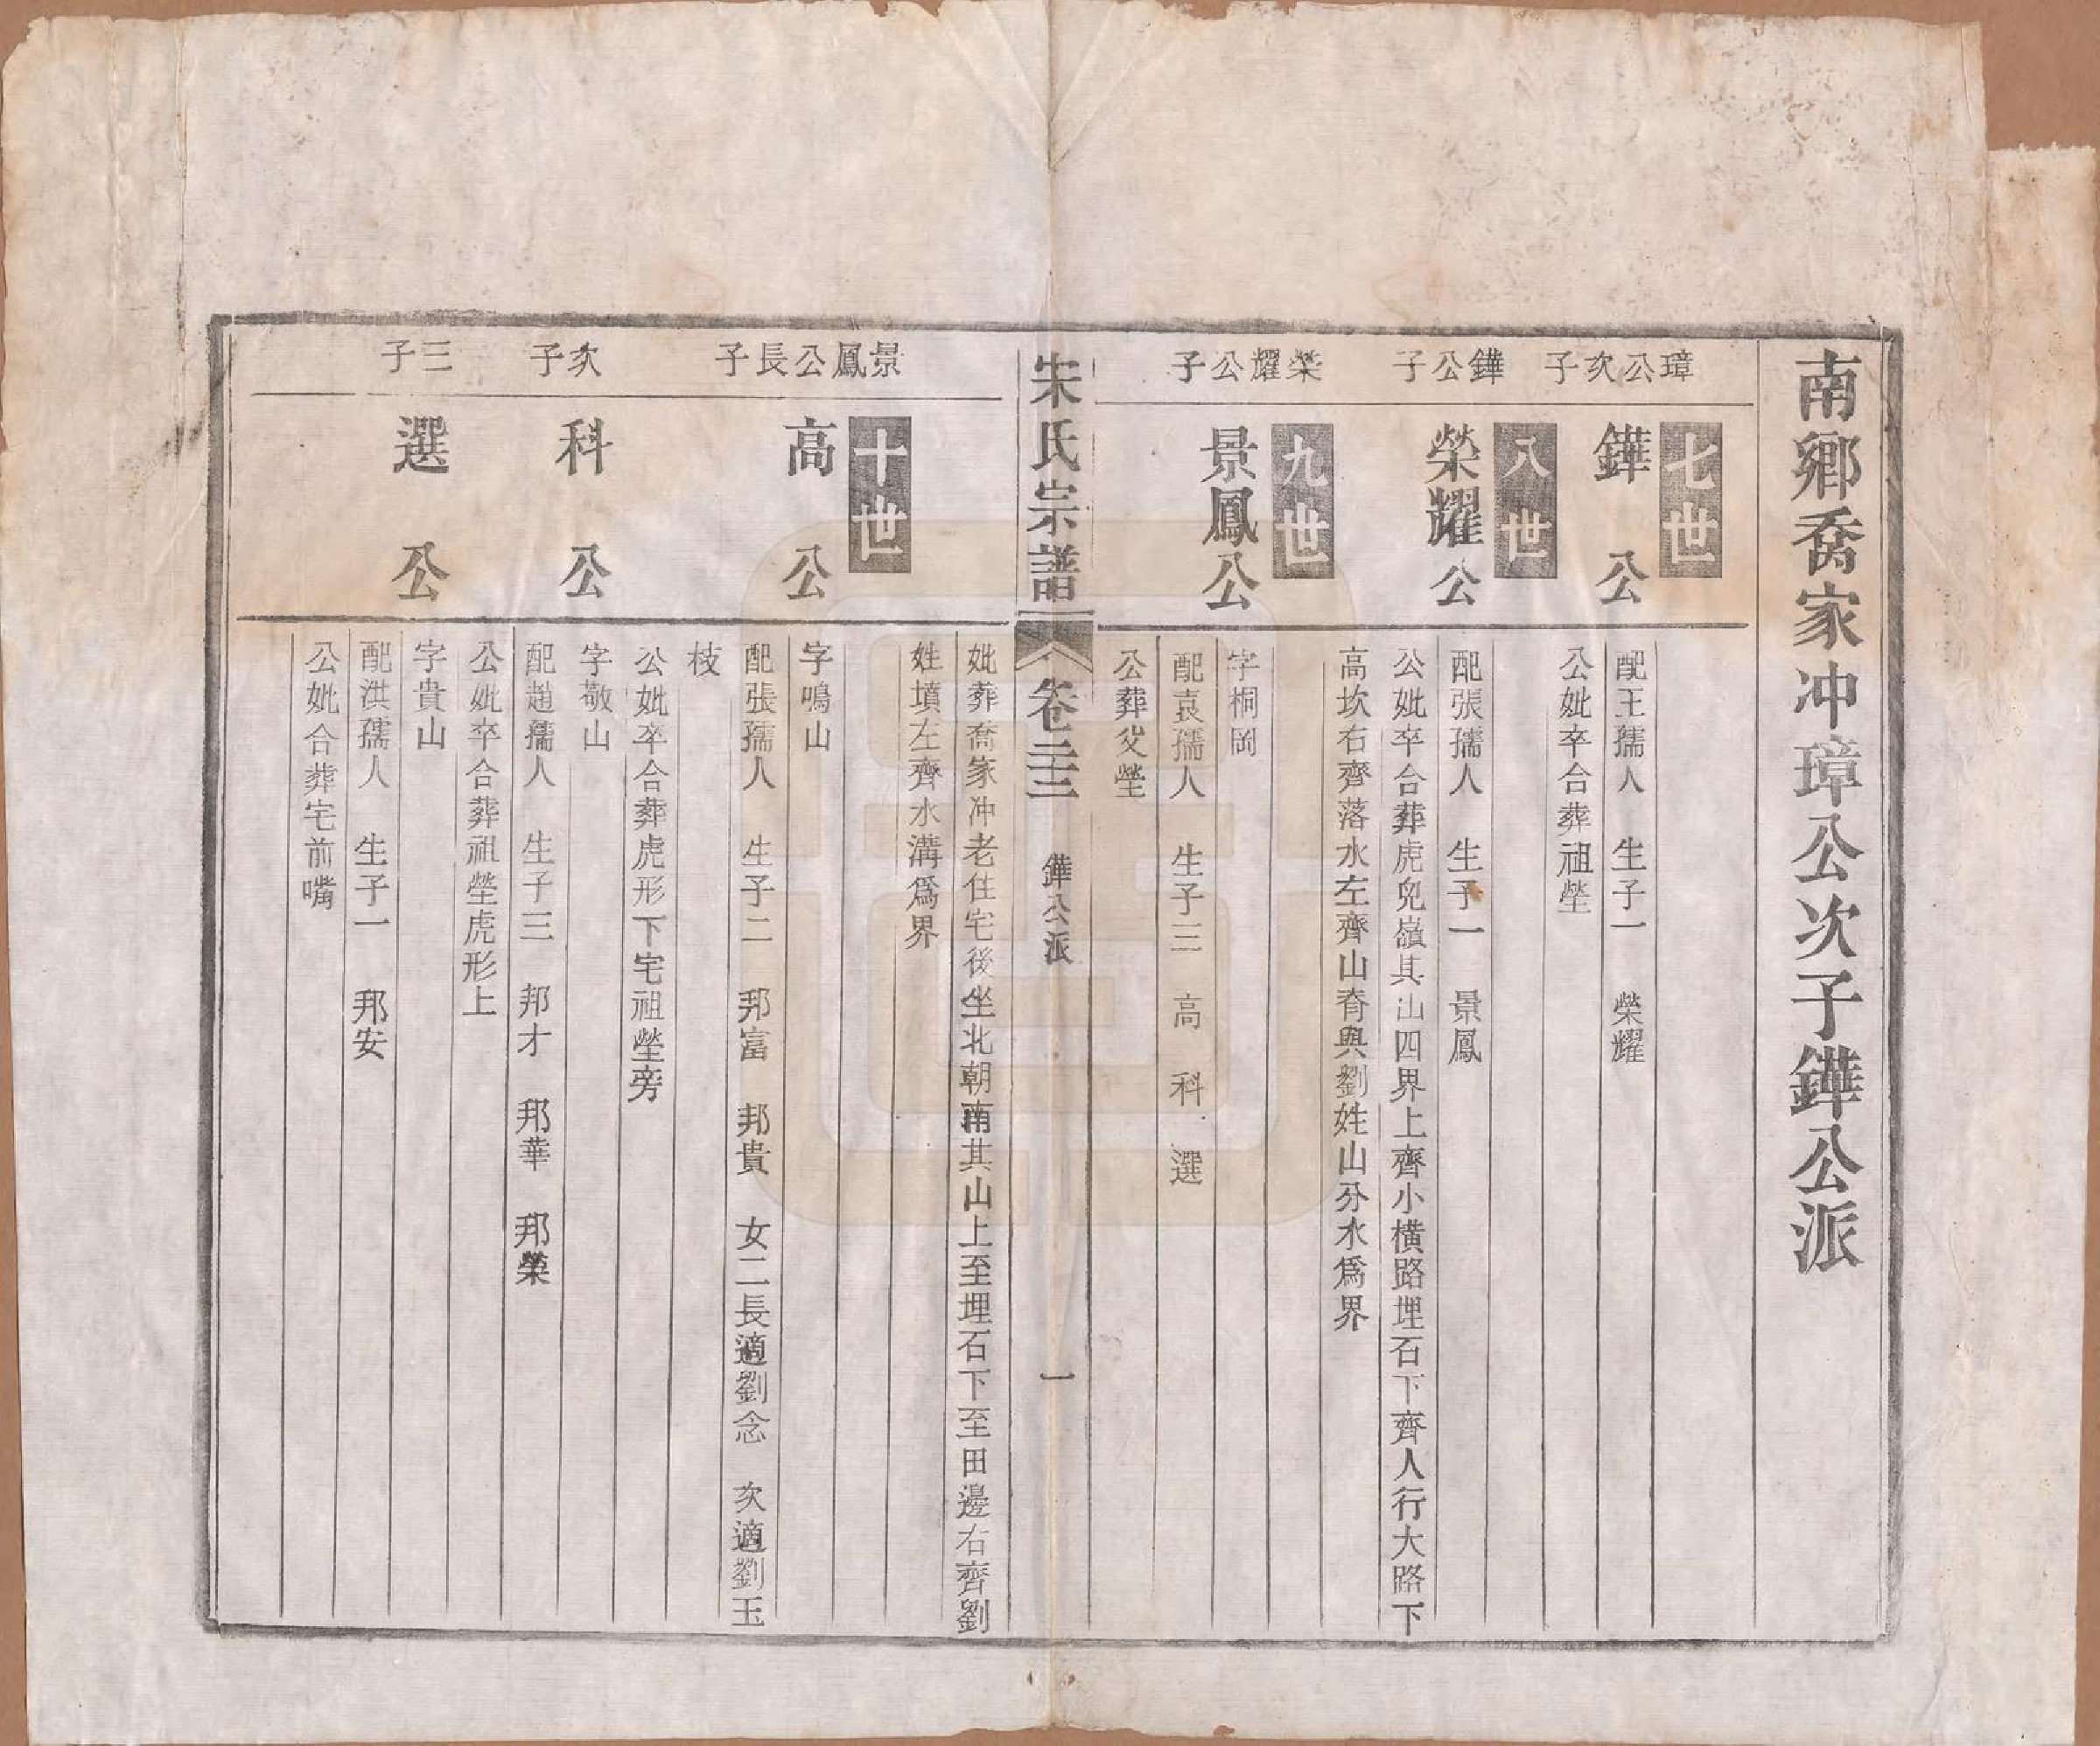 南鄉喬家冲璋公次子鏵公派
璋公次子
七世
鏵公
配王孺人 生子一 榮耀
公妣卒合葬祖塋
鏵公子
八世
榮耀公
配張孺人 生子一 景鳳
公妣卒合葬虎兒嶺其山四界上齊小橫路埋石下齊人行大路下
高坎右齊落水左齊山脊與劉姓山分水爲界
榮耀公子
九世
景鳳公
字桐岡
配袁孺人 生子三 高 科 選
公葬父塋
朱氏宗譜 卷二三 鏵公派 一
妣葬喬家冲老住宅後坐北朝南其山上至埋石下至田邊右齊劉
姓墳左齊水溝爲界
景鳳公長子
十世
高公
字鳴山
配張孺人 生子二 邦富 邦貴 女二長適劉念 次適劉玉
枝
公妣卒合葬虎形下宅祖塋旁
次子
科公
字敬山
配趙孺人 生子三 邦才 邦華 邦榮
公妣卒合葬祖塋虎形上
三子
選公
字貴山
配洪孺人 生子一 邦安
公妣合葬宅前嘴